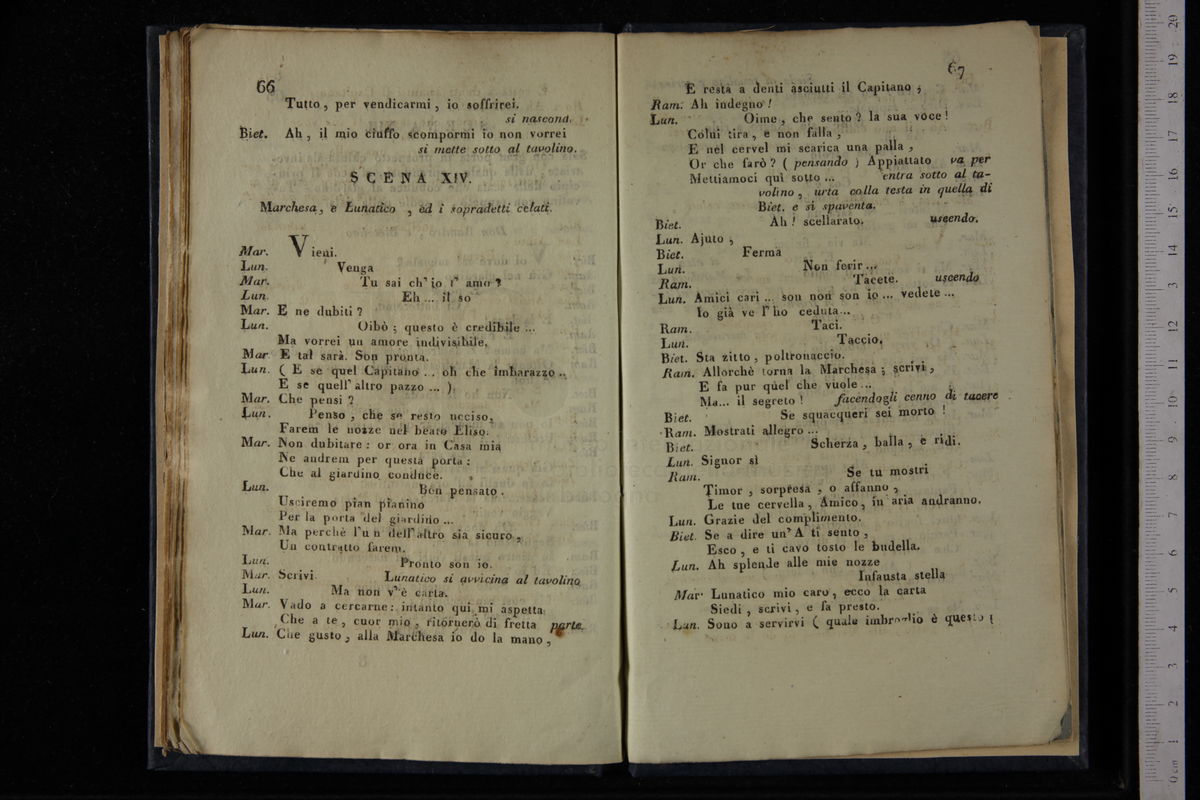 66
Tutto, per vendicarmi, io soffrirei.
si nascond.
Biet. Ah, il mio ciuffo scompormi io non vorrei
si mette sotto al tavolino.
SCENA XIV.
Marchesa, e Lunatico, ed i sopradetti celati.
Mar. Vieni.
Lun. Venga
Mar. Tu sai ch'io t'amo?
Lun. Eh ... il so
Mar. E ne dubiti?
Lun. Oibò; questo è credibile ...
Ma vorrei un amore indivisibile.
Mar. E tal sarà. Son pronta.
Lun. ( E se quel Capitano ... oh che imbarazzo ..
E se quell'altro pazzo ... )
Mar. Che pensi?
Lun. Penso, che se resto ucciso,
Farem le nozze nel beato Eliso.
Mar. Non dubitare: or ora in Casa mia
Ne andrem per questa porta:
Che al giardino conduce.
Lun. Ben pensato.
Usciremo pian pianino
Per la porta del giardino ...
Mar. Ma perchè l'un dell'altro sia sicuro,
Un contratto farem.
Lun. Pronto son io.
Mar. Scrivi. Lunatico si avvicina al tavolino
Lun. Ma non v'è carta.
Mar. Vado a cercarne: intanto qui mi aspetta
Che a te, cuor mio, ritornerò di fretta parte.
Lun. Che gusto, alla Marchesa io do la mano,
67
E resta a denti asciutti il Capitano,
Ram. Ah indegno!
Lun. Oime, che sento? la sua voce!
Colui tira, e non falla,
E nel cervel mi scarica una palla,
Or che farò? ( pensando ) Appiattato va per
Mettiamoci quì sotto ... entra sotto al ta-
volino, urta colla testa in quella di
Biet. e si spaventa.
Biet. Ah! scellarato. uscendo.
Lun. Ajuto,
Biet. Ferma
Lun. Non ferir ...
Ram. Tacete. uscendo
Lun. Amici cari ... son non son io ... vedete ...
Io già ve l'ho ceduta ...
Ram. Taci.
Lun. Taccio.
Biet. Sta zitto, poltronaccio.
Ram. Allorchè torna la Marchesa; scrivi,
E fa pur quel che vuole ...
Ma... il segreto! facendogli cenno di tacere
Biet. Se squacqueri sei morto!
Ram. Mostrati allegro ...
Biet. Scherza, balla, e ridi.
Lun. Signor sì
Ram. Se tu mostri
Timor, sorpresa, o affanno,
Le tue cervella, Amico, in aria andranno.
Lun. Grazie del complimento.
Biet. Se a dire un' A ti sento,
Esco, e ti cavo tosto le budella.
Lun. Ah splende alle mie nozze
Infausta stella
Mar. Lunatico mio caro, ecco la carta
Siedi, scrivi, e fa presto.
Lun. Sono a servirvi ( quale imbroglio è questo!